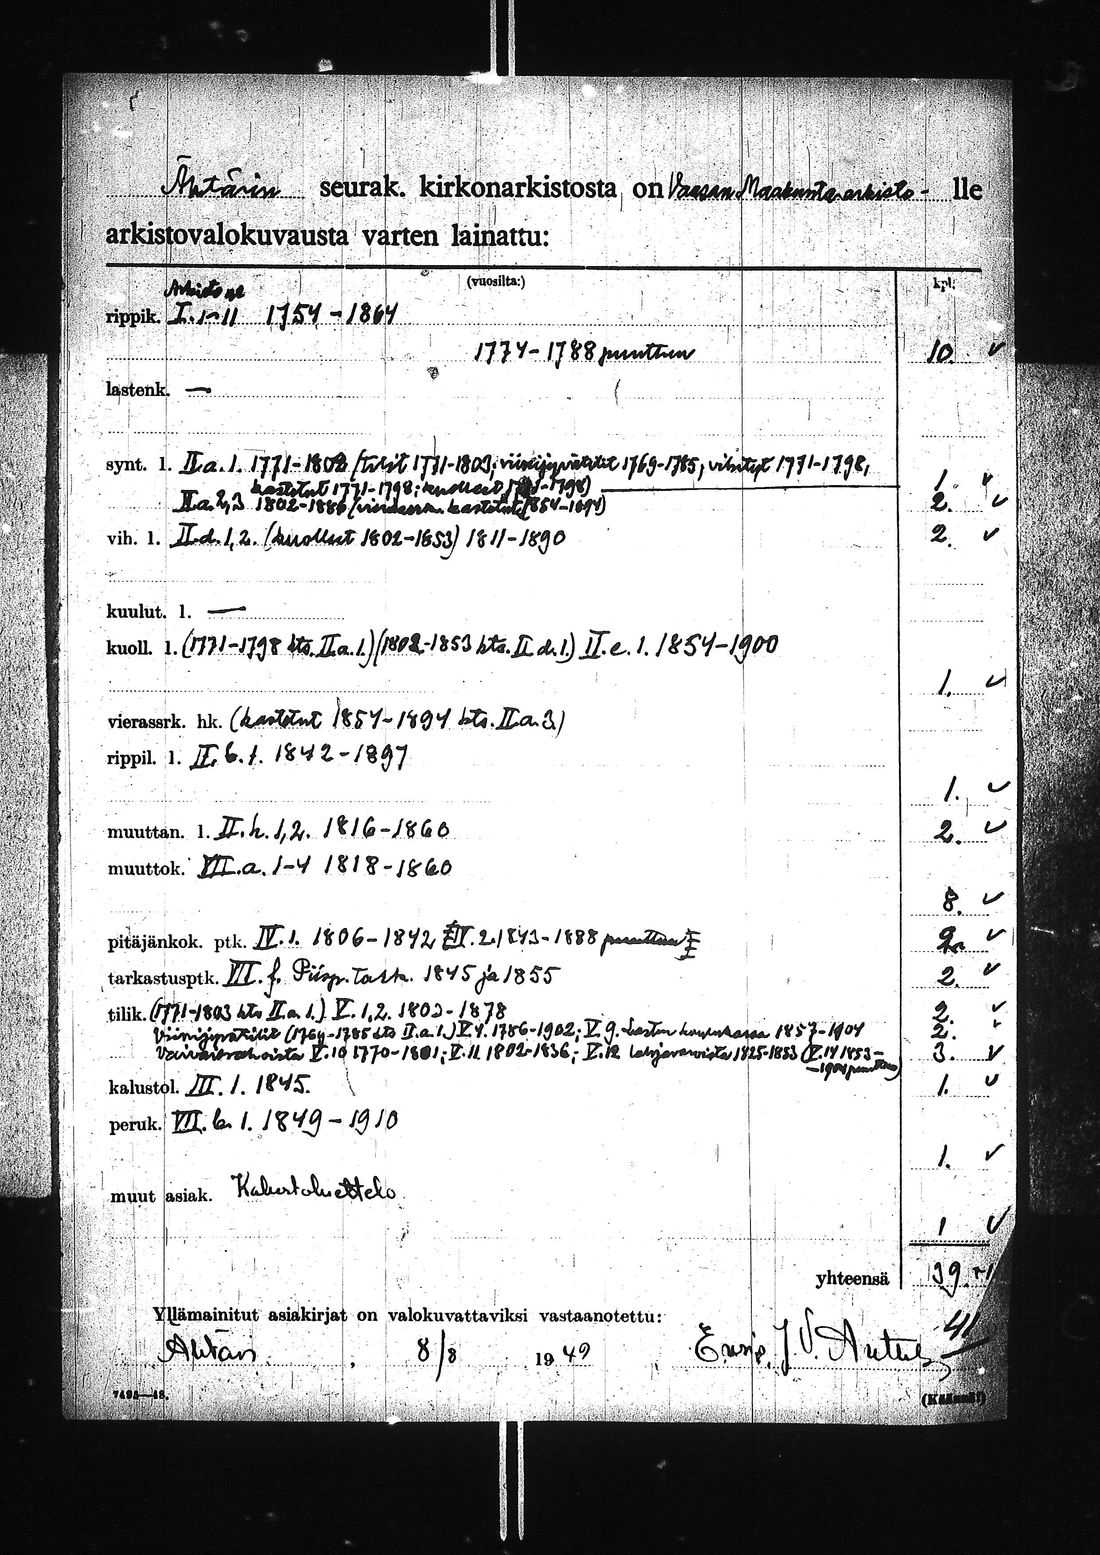 Ähtärin seurak. kirkonarkistosta on Vaasan Maakunta-arkisto- lle
arkistovalokuvausta varten lainattu:
(vuosilta:) kpl.
Arkisto
rippik. I. 1-11 1754-1864
1774-1788 puuttuu 10. ✓
lastenk. —
synt. l. II a. 1. 1771-1802 (tilit 1771-1803; viinijyvätilit 1769-1785, vihityt 1771-1798,
kastetut 1771-1798; kuolleet 1771-1798) 1.
II a. 2, 3 1802-1886 (vierasrk. kastetut 1854-1894) 2. ✓
vih. l. II d. 1, 2. (kuolleet 1802-1853) 1811-1890 2. ✓
kuulut. l. —
kuoll. l. (1771-1798 kts. II a. 1.) (1802-1853 kts. II d. 1.) II. e. 1. 1854-1900
1. ✓
vierassrk. hk. (kastetut 1854-1894 kts. II a. 3)
rippil. l. II. b. 1. 1842-1897
1. ✓
muuttan. l. II. h. 1, 2. 1816-1860 2. ✓
muuttok. VII. a. 1-4 1818-1860
8. ✓
pitäjänkok. ptk. IV. 1. 1806-1842 IV. 2. 1843-1888 puuttuu 2. ✓
tarkastusptk. VII. f. Piisp. tark. 1845 ja 1855 2. ✓
tilik. (1771-1803 kts II a. 1.) V. 1, 2. 1802-1878 2. ✓
Viinijyvätilit (1769-1785 kts II. a. 1.) V. 4. 1786-1902; V. 9. Lasten koulukassa 1857-1904 2.
Vaivaisrahoista V. 10 1770-1801; V. 11 1802-1836; V. 12 1825-1853 (V. 14 1853- 3. ✓
-1904 puuttuu)
kalustol. III. 1. 1845. 1. ✓
peruk. VII. b. 1. 1849-1910
1. ✓
muut asiak. Kalustoluettelo
1 ✓
yhteensä 39
Yllämainitut asiakirjat on valokuvattaviksi vastaanotettu: 41
Ähtäri, 8/8 1949 J. V.
(Käännä!)